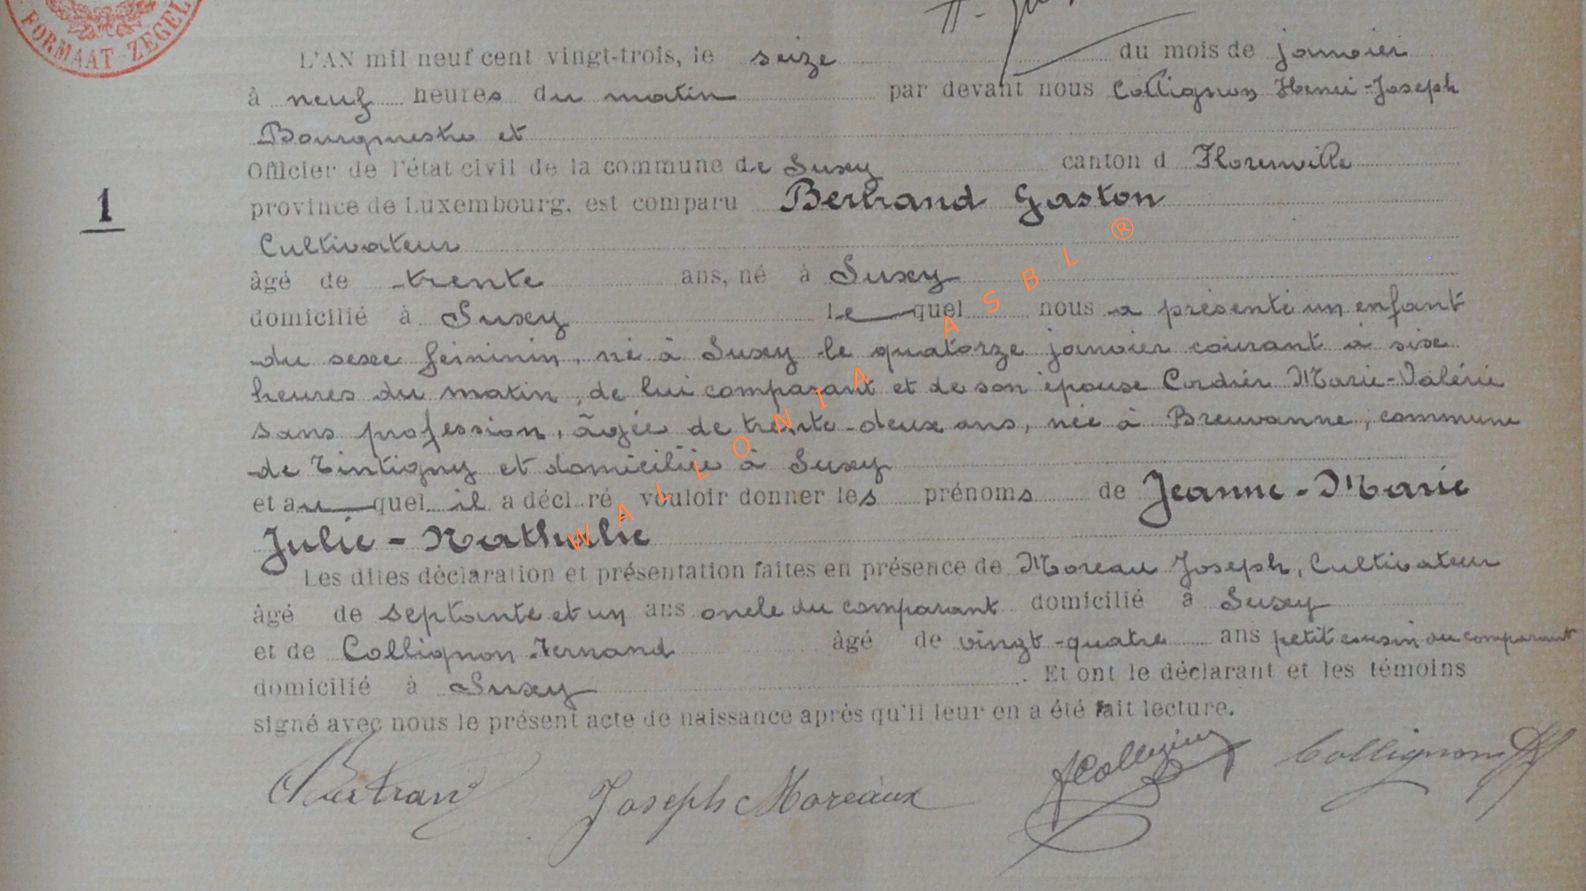 FORMAAT-ZEGEL
L'AN mil neuf cent vingt-trois, le seize du mois de janvier
à neuf heures du matin par devant nous Collignon Henri-Joseph
Bourgmestre et
Officier de l'état civil de la commune de Suxy canton d Florenville
1
province de Luxembourg, est comparu Bertrand Gaston
Cultivateur
âgé de trente ans, né à Suxy
domicilié à Suxy lequel nous a présenté un enfant
du sexe féminin, né à Suxy le quatorze janvier courant à six
heures du matin, de lui comparant et de son épouse Cordier Marie-Valérie
sans profession, âgée de trente-deux ans, née à Breuvanne, commune
de Tintigny et domiciliée à Suxy
et auquel il a déclaré vouloir donner les prénoms de Jeanne-Marie
Julie-Nathalie
Les dites déclaration et présentation faites en présence de Moreau Joseph, Cultivateur
âgé de septante et un ans oncle du comparant domicilié à Suxy
et de Collignon Fernand âgé de vingt-quatre ans petit cousin du comparant
domicilié à Suxy. Et ont le déclarant et les témoins
signé avec nous le présent acte de naissance après qu'il leur en a été fait lecture.
GBertrand Joseph Moreaux FCollignon Collignon
WALLONIA ASBL ®